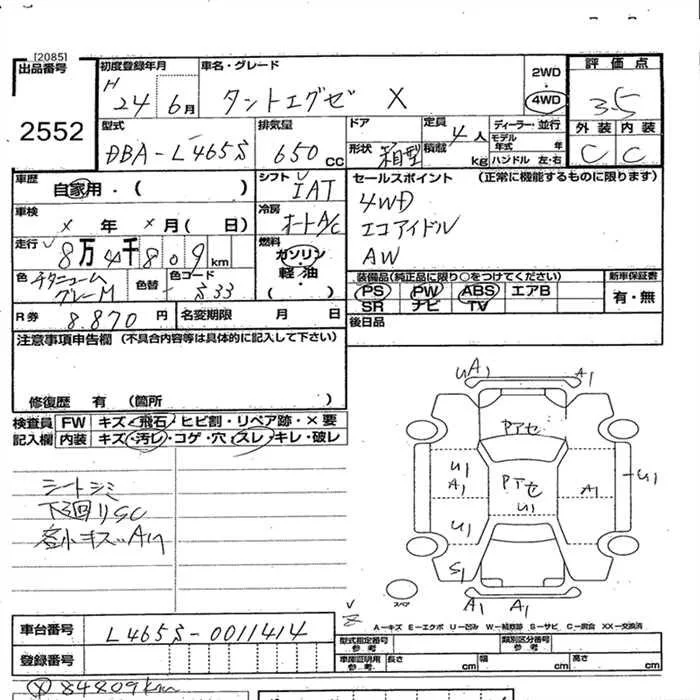 [2085]
出品番号
2552
初度登録年月
H
24 6月
車名・グレード
タントエグゼ X
2WD
4WD
評価点
3.5
型式
DBA-L465S
排気量
650cc
ドア
形状 箱型
定員 4人
積載 kg
ディーラー・並行
モデル年式 年
ハンドル 左・右
外装 内装
C C
車歴
自家用・( )
シフト
IAT
セールスポイント (正常に機能するものに限ります)
4WD
エコアイドル
AW
車検
× 年 ×月( 日)
冷房
オートA/C
走行
8万4千809km
燃料
ガソリン
軽・油
( )
色 チタニューム
グレーM
色替
色コード
S33
装備品(純正品に限り○をつけてください)
PS PW ABS エアB
SR ナビ TV
新車保証書
有・無
R券 8.870円
名変期限 月 日
後日品
注意事項申告欄(不具合内容等は具体的に記入して下さい)
修復歴 有(箇所 )
検査員記入欄
FW キズ・飛石・ヒビ割・リペア跡・×要
内装 キズ・汚レ・コゲ・穴・スレ・キレ・破レ
シートシミ
下廻りSC
A1
UA1
A1
Pアセ
U1
A1
PTセ
U1
A1
U1
U1
S1
A1
A1
スペア
A-キズ E-エクボ U-凹み W-補修跡 S-サビ C-腐食 XX-交換済
車台番号
L465S-0011414
登録番号
型式指定番号
参考
類別区分番号
参考
車庫証明用
参考
長さ cm
幅 cm
高さ cm
84809km